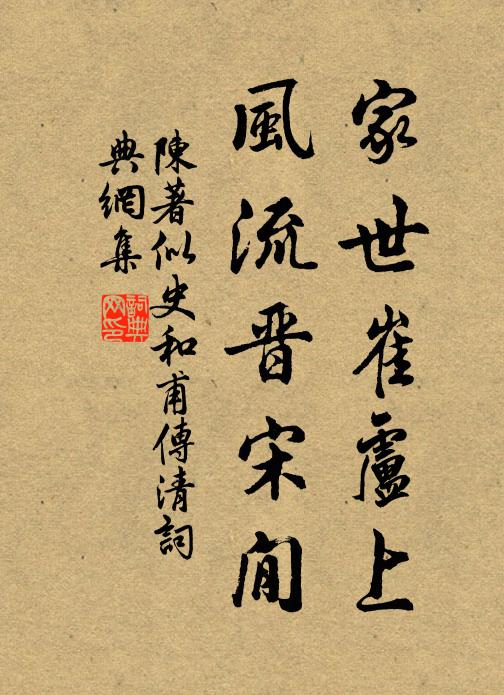 家世崔盧上
風流晋宋間
陳著似史和甫傳清詞
典網集
詞典
网印